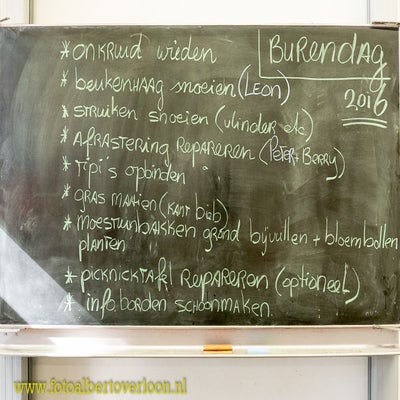 BURENDAG
2016
* ONKRUID wieden
* beukenHAAG snoeien (LEON)
* STRUIKEN snoeien (vlinder etc)
* AFRASTERING REPAREREN (PETER + BERRY)
* Tipi's opbinden
* GRAS MAAIEN (KANT Bieb)
* moestuinbakken grond bijvullen + bloembollen
planten
* PICKNICKTAFEL REPAREREN (optioneel)
* info borden schoonmaken.
www.fotoalbertoverloon.nl